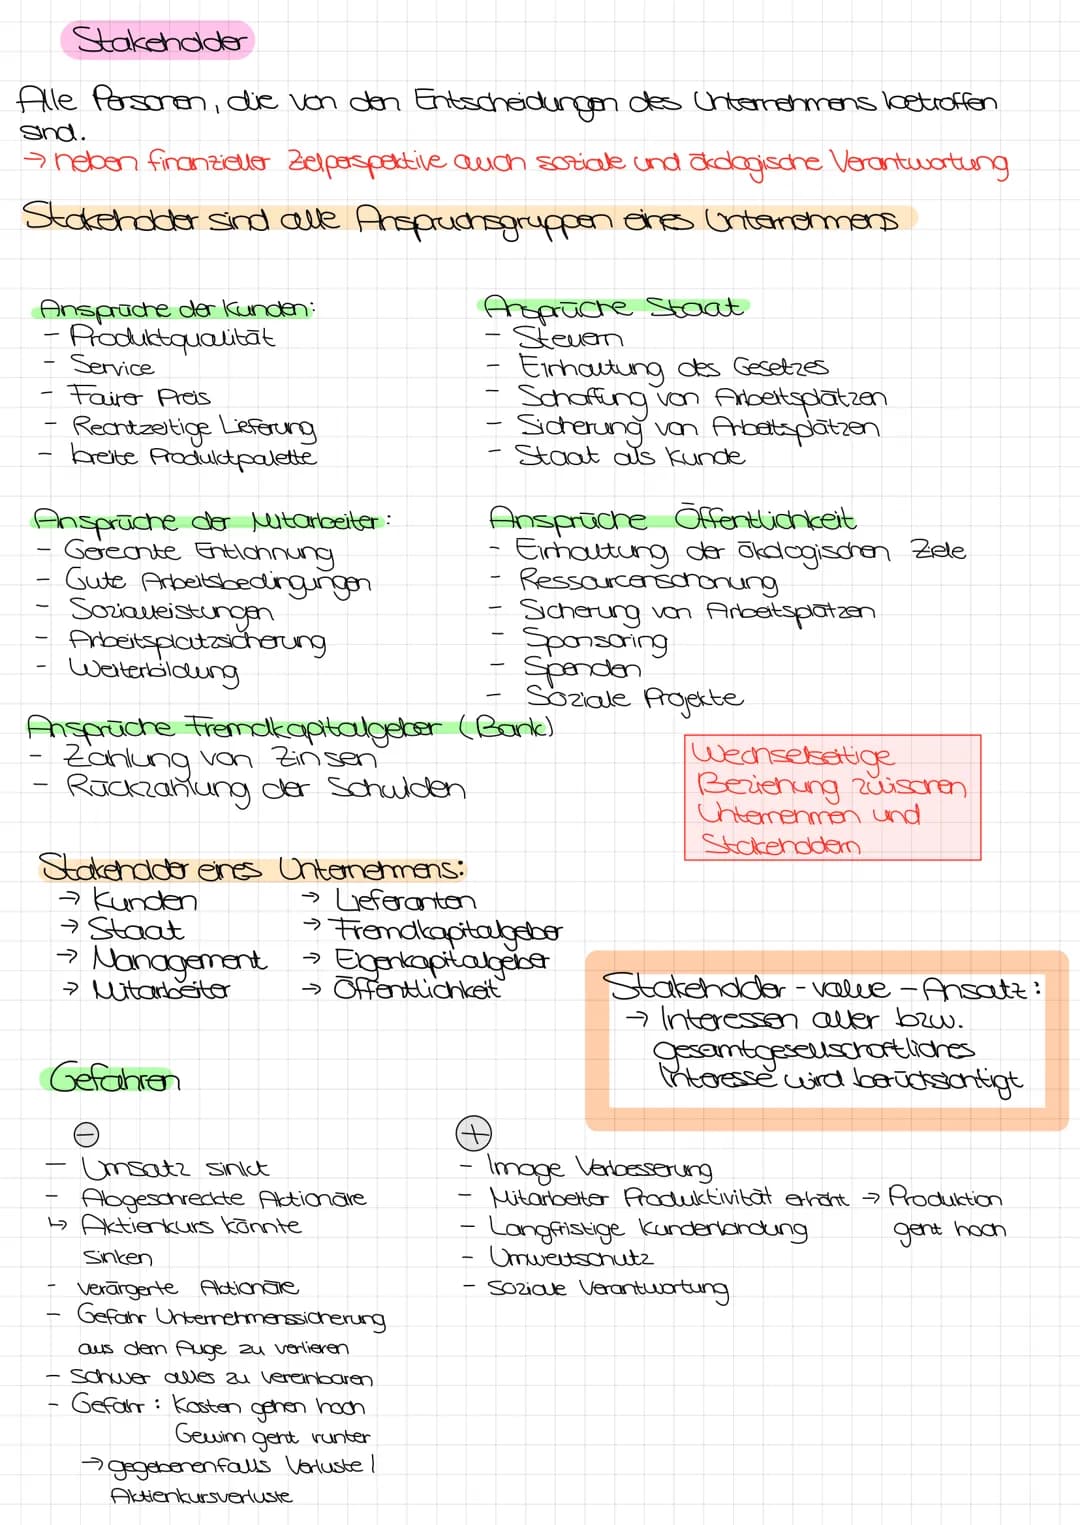 Stakeholder
Alle Personen, die von den Entscheidungen des Unternehmens betroffen
sind.
→ neben finanzieller Zielperspektive auch soziale und ökologische Verantwortung
Stakeholder sind alle Anspruchsgruppen eines Unternehmens
Ansprüche der Kunden:
- Produktqualität
- Service
- Fairer Preis
- Rechtzeitige Lieferung
- breite Produktpalette
Ansprüche Staat
- Steuern
- Einhaltung des Gesetzes
- Schaffung von Arbeitsplätzen
- Sicherung von Arbeitsplätzen
- Staat als Kunde
Ansprüche der Mitarbeiter:
- Gerechte Entlohnung
- Gute Arbeitsbedingungen
- Sozialleistungen
- Arbeitsplatzsicherung
- Weiterbildung
Ansprüche Öffentlichkeit
- Einhaltung der ökologischen Ziele
- Ressourcenschonung
- Sicherung von Arbeitsplätzen
- Sponsoring
- Spenden
- Soziale Projekte
Ansprüche Fremdkapitalgeber (Bank)
- Zahlung von Zinsen
- Rückzahlung der Schulden
Wechselseitige
Beziehung zwischen
Unternehmen und
Stakeholdern
Stakeholder eines Unternehmens:
→ Kunden
→ Staat
→ Management
→ Mitarbeiter
→ Lieferanten
→ Fremdkapitalgeber
→ Eigenkapitalgeber
→ Öffentlichkeit
Stakeholder-value-Ansatz:
→ Interessen aller bzw.
gesamtgesellschaftliches
Interesse wird berücksichtigt
Gefahren
⊖
- Umsatz sinkt
- Abgeschreckte Aktionäre
↳ Aktienkurs könnte
sinken
- verärgerte Aktionäre
- Gefahr Unternehmenssicherung
aus dem Auge zu verlieren
- Schwer alles zu vereinbaren
- Gefahr: Kosten gehen hoch
Gewinn geht runter
→ gegebenenfalls Verluste /
Aktienkursverluste
⊕
- Image Verbesserung
- Mitarbeiter Produktivität erhöht → Produktion
geht hoch
- Langfristige Kundenbindung
- Umweltschutz
- Soziale Verantwortung